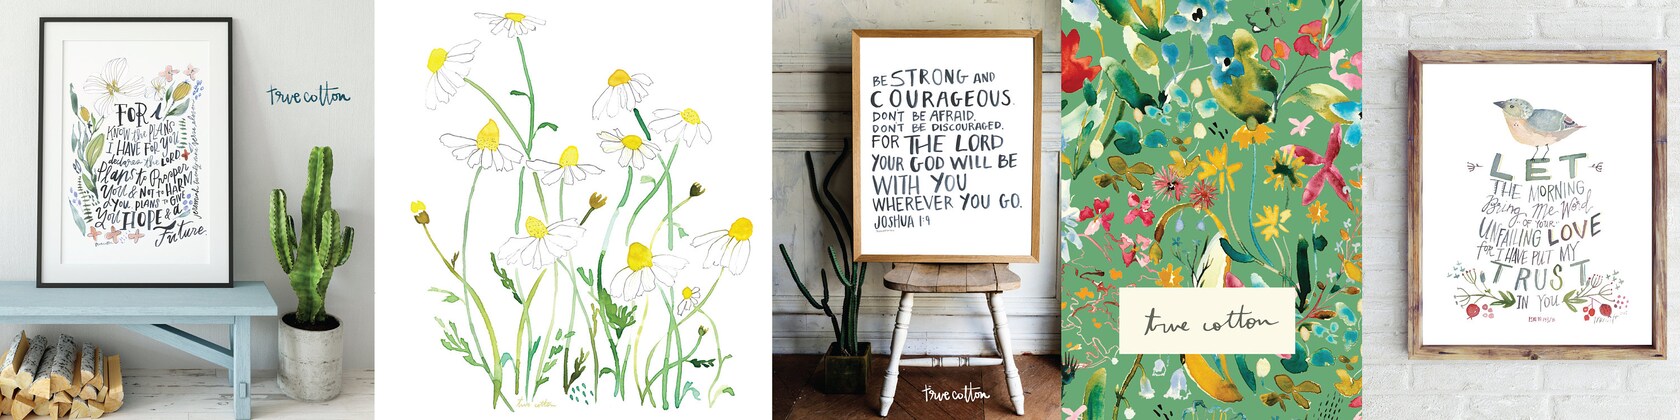 true cotton
FOR I
KNOW the PLANS
I HAVE FOR YOU
declares the LORD
Plans to Prosper
YOU & NOT to HARM
YOU, PLANS to GIVE
YOU HOPE & a
Future.
true cotton
BE STRONG AND
COURAGEOUS.
DON'T BE AFRAID.
DON'T BE DISCOURAGED.
FOR THE LORD
YOUR GOD WILL BE
WITH YOU
WHEREVER YOU GO.
JOSHUA 1:9
true cotton
true cotton
LET
THE MORNING
Bring Me Word
OF YOUR
UNFAILING LOVE
for I HAVE PUT MY
TRUST
IN YOU